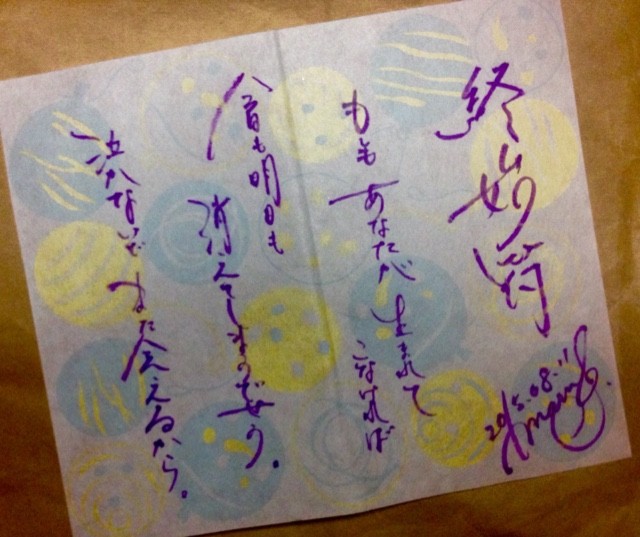 終始符
2015.08.11
もしも あなたが 生まれて
こなければ
今日も明日も
消えてしまうだろう。
泣かないで また会えるから。